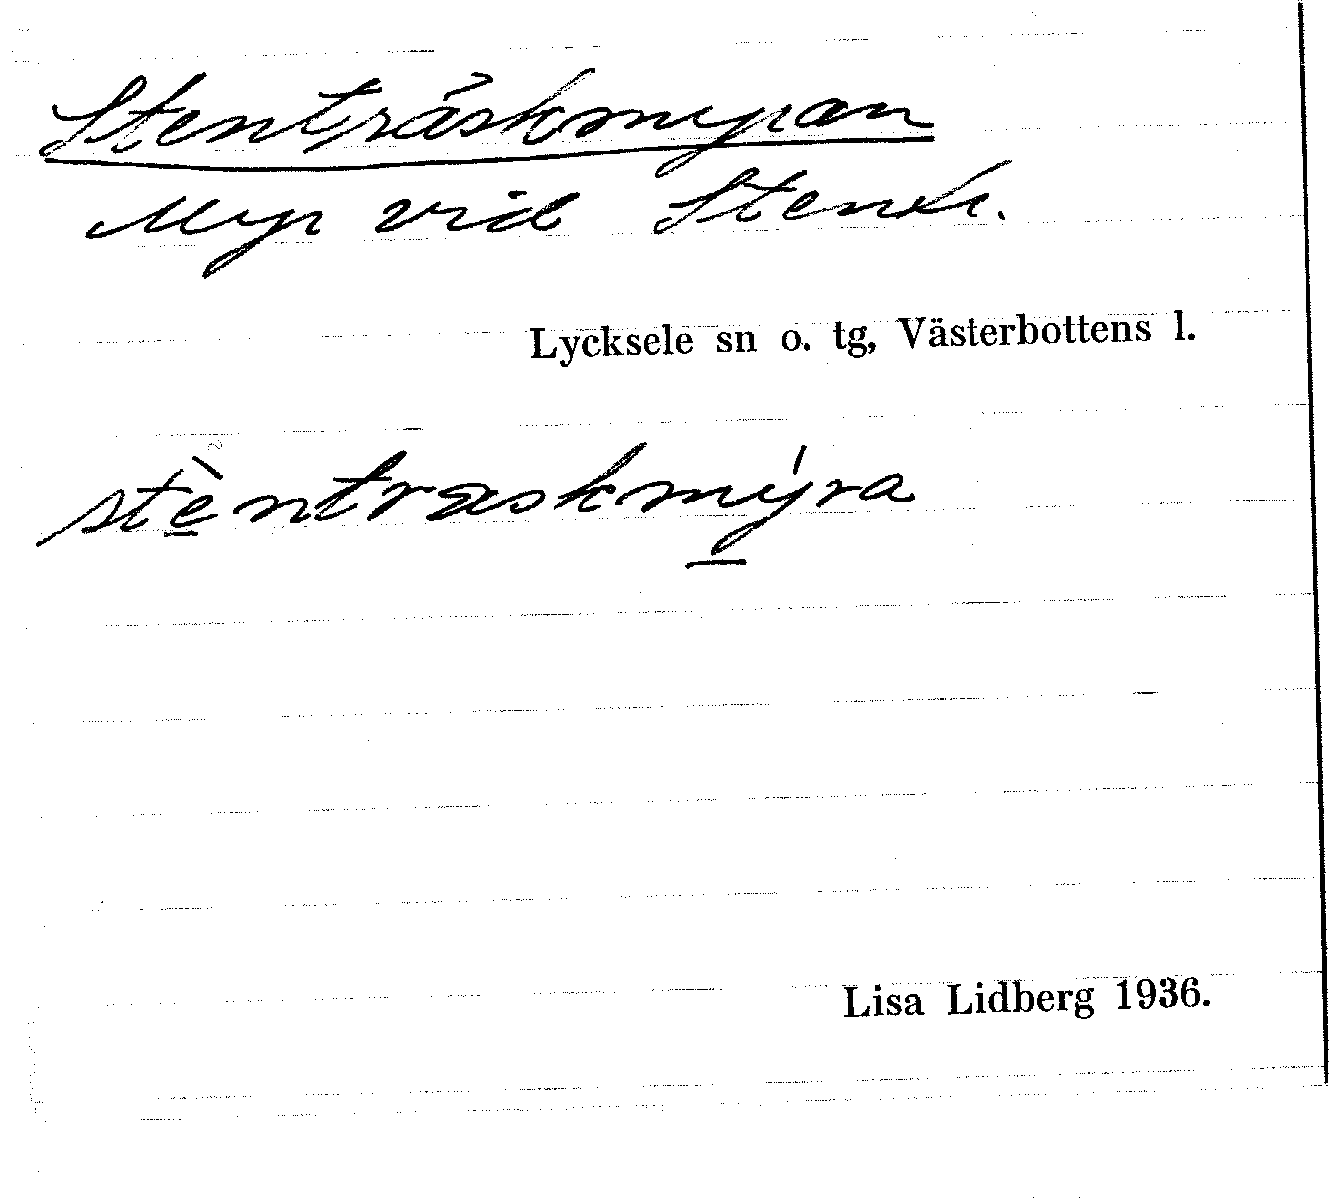 Stenträskmyran
Myr vid Stentr.
Lycksele sn o. tg, Västerbottens l.
stèntraskmýra
Lisa Lidberg 1936.